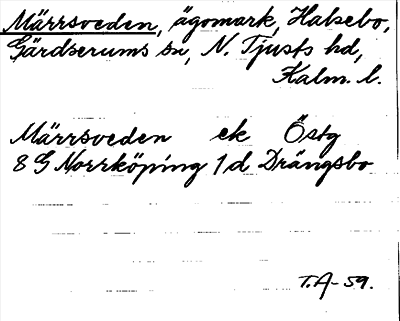 Märrsveden, ägomark, Halsebo,
Gärdserums sn, N. Tjusts hd,
Kalm. l.
Märrsveden ek Östg
8 G Norrköping 1d Drängsbo
T.A-59.